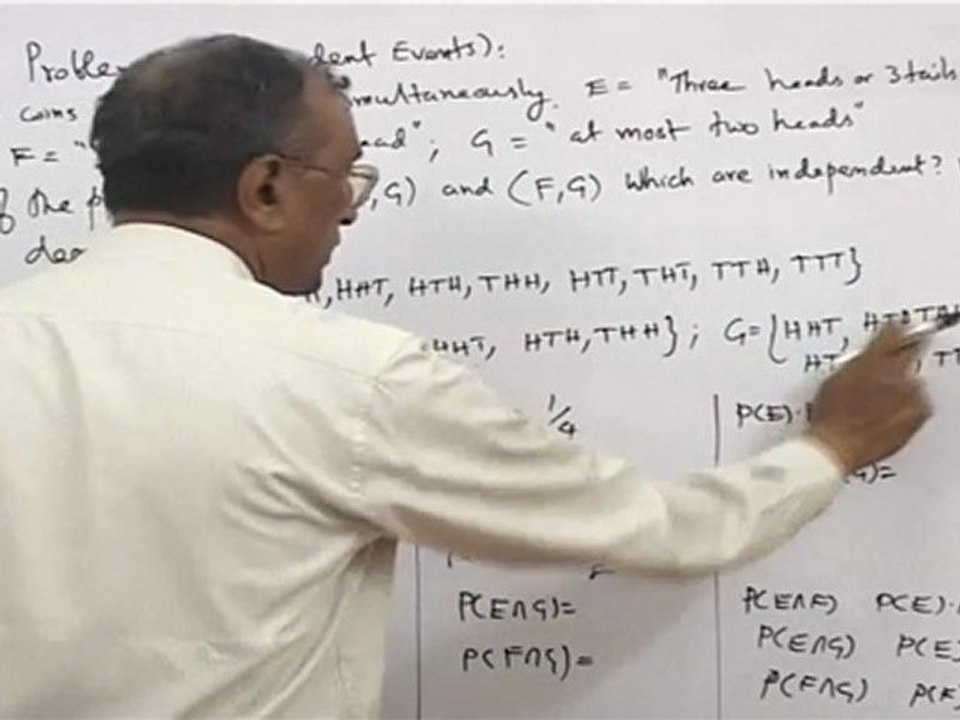 Proble dent Events):
coins multaneously. E = "Three heads or 3 tails
F = " ead"; G = "at most two heads"
of the p ,G) and (F,G) which are independent?
de
,HHT, HTH, THH, HTT, THT, TTH, TTT}
HHT, HTH, THH}; G={HHT,
HT , TT
1/4 P(E).
)=
P(E∩G)= P(E∩F) P(E).
P(F∩G)= P(E∩G) P(E)
P(F∩G) P(F)